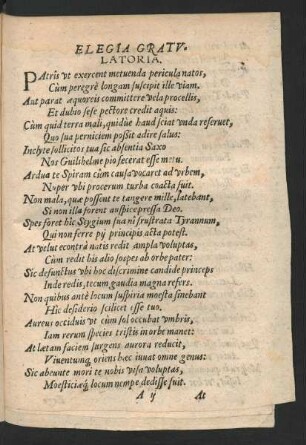 ELEGIA GRATV-
LATORIA.
PAtris vt exercent metuenda pericula natos,
Cùm peregrè longam suscipit ille viam.
Aut parat æquoreis committere vela procellis,
Et dubio sese pectore credit aquis:
Cùm quid terra mali, quidúe haud sciat vnda reseruet,
Quo sua perniciem possit adire salus:
Inclyte sollicitos tua sic absentia Saxo
Nos Guilhelme pio fecerat esse metu.
Ardua te Spiram cùm causa vocaret ad vrbem,
Nuper vbi procerum turba coacta fuit.
Non mala, quæ possent te tangere mille, latebant,
Si non illa forent auspice pressa Deo.
Spes foret hîc Stygium sua ni frustrata Tyrannum,
Qui non ferre pij principis acta potest.
At velut econtrà natis redit ampla voluptas,
Cùm redit his alio sospes ab orbe pater:
Sic defunctus vbi hoc discrimine candide princeps
Inde redis, tecum gaudia magna refers.
Non quibus antè locum suspiria moesta sinebant
Hîc desiderio scilicet esse tuo.
Aureus occiduis vt cùm sol occubat vmbris,
Iam rerum species tristis in orbe manet:
At lætam faciem surgens aurora reducit,
Viuentumq́ oriens hæc iuuat omne genus:
Sic abeunte mori te nobis visa voluptas,
Moesticiæq́ locum nempe dedisse fuit.
A ij At